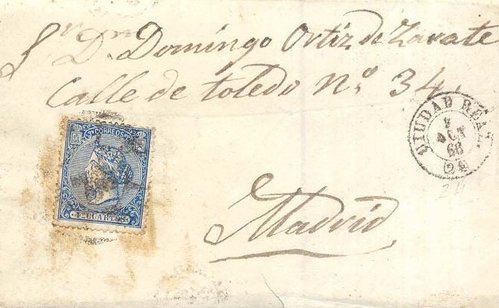 Sr. Dn. Domingo Ortiz de Zarate
Calle de toledo nº 34.
Madrid
CORREOS
CUARTOS
CIUDAD REAL
66